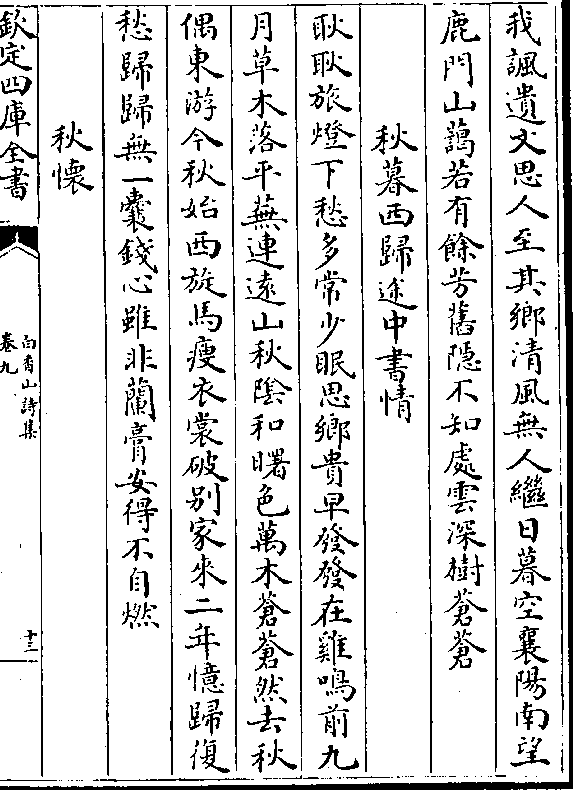 我諷遺文思人至其鄉清風無人繼日暮空襄陽南望
鹿門山藹若有餘芳舊隱不知處雲深樹蒼蒼
秋暮西歸途中書情
耿耿旅燈下愁多常少眠思鄉貴早發發在雞鳴前九
月草木落平蕪連遠山秋陰和曙色萬木蒼蒼然去秋
偶東游今秋始西旋馬瘦衣裳破别家來二年憶歸復
愁歸歸無一囊錢心雖非蘭膏安得不自燃
秋懷
欽定四庫全書
白香山詩集
卷九
十三